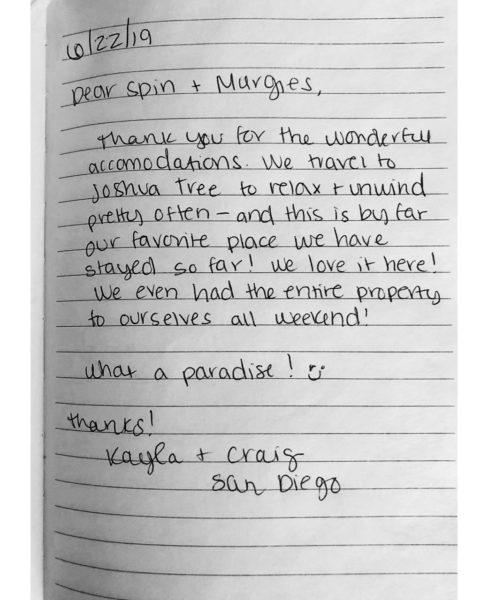 6/22/19
Dear Spin + Margies,
Thank you for the wonderful
accomodations. We travel to
Joshua Tree to relax + unwind
pretty often – and this is by far
our favorite place we have
stayed so far! We love it here!
We even had the entire property
to ourselves all weekend!
What a paradise! :)
Thanks!
Kayla + Craig
San Diego